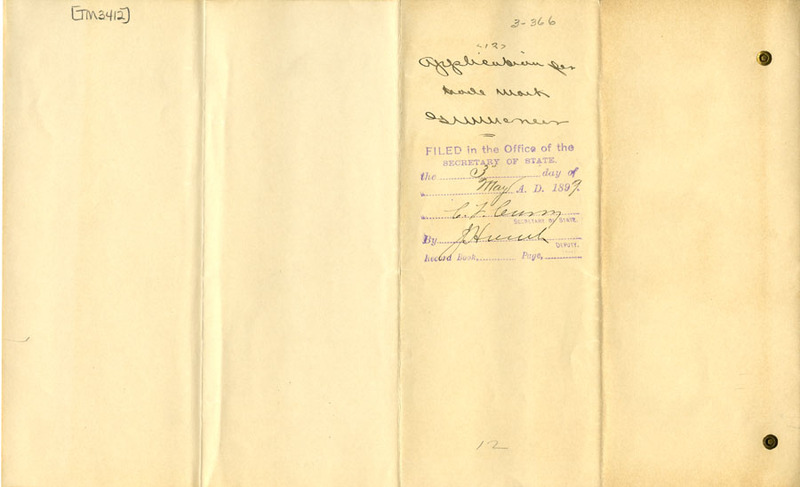 [TM3412]
3-366
"12"
Application for
trade mark
FILED in the Office of the
SECRETARY OF STATE,
the 3 day of
May A. D. 1899.
C. F. Curry
SECRETARY OF STATE.
By J. Hoesch
DEPUTY.
Record Book, Page,
12